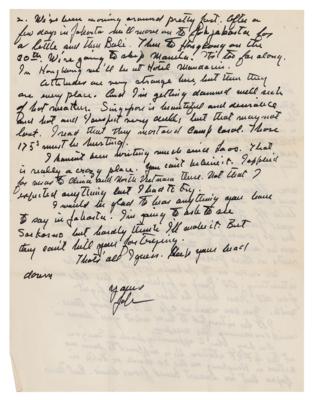 2. We've been moving around pretty fast. After a
few days in Jakarta we'll move on to Jogjakarta for
a little and then Bali. Then to Hongkong on the
20th. We're going to skip Manila. It's too far along.
In Hongkong we'll be at Hotel Mandarin.
Letters are very strange here but then they
are every place. And I'm getting damned well sick
of hot weather. Singapore is beautiful and
and hot and Transport very dull; but that may not
last. I read that they mortared Camp Carol. Those
175s must be hurting.
I haven't been writing much since Laos. That
is really a crazy place. You can't believe it. I applied
for visas to China and North Vietnam there. Not that I
expected anything but I had to try.
I would be glad to hear anything you have
to say in Jakarta. I'm going to ask to see
Soekarno but hardly think I'll make it. But
they can't kill you for trying.
That's all I guess. Keep your head
down
Yours
John